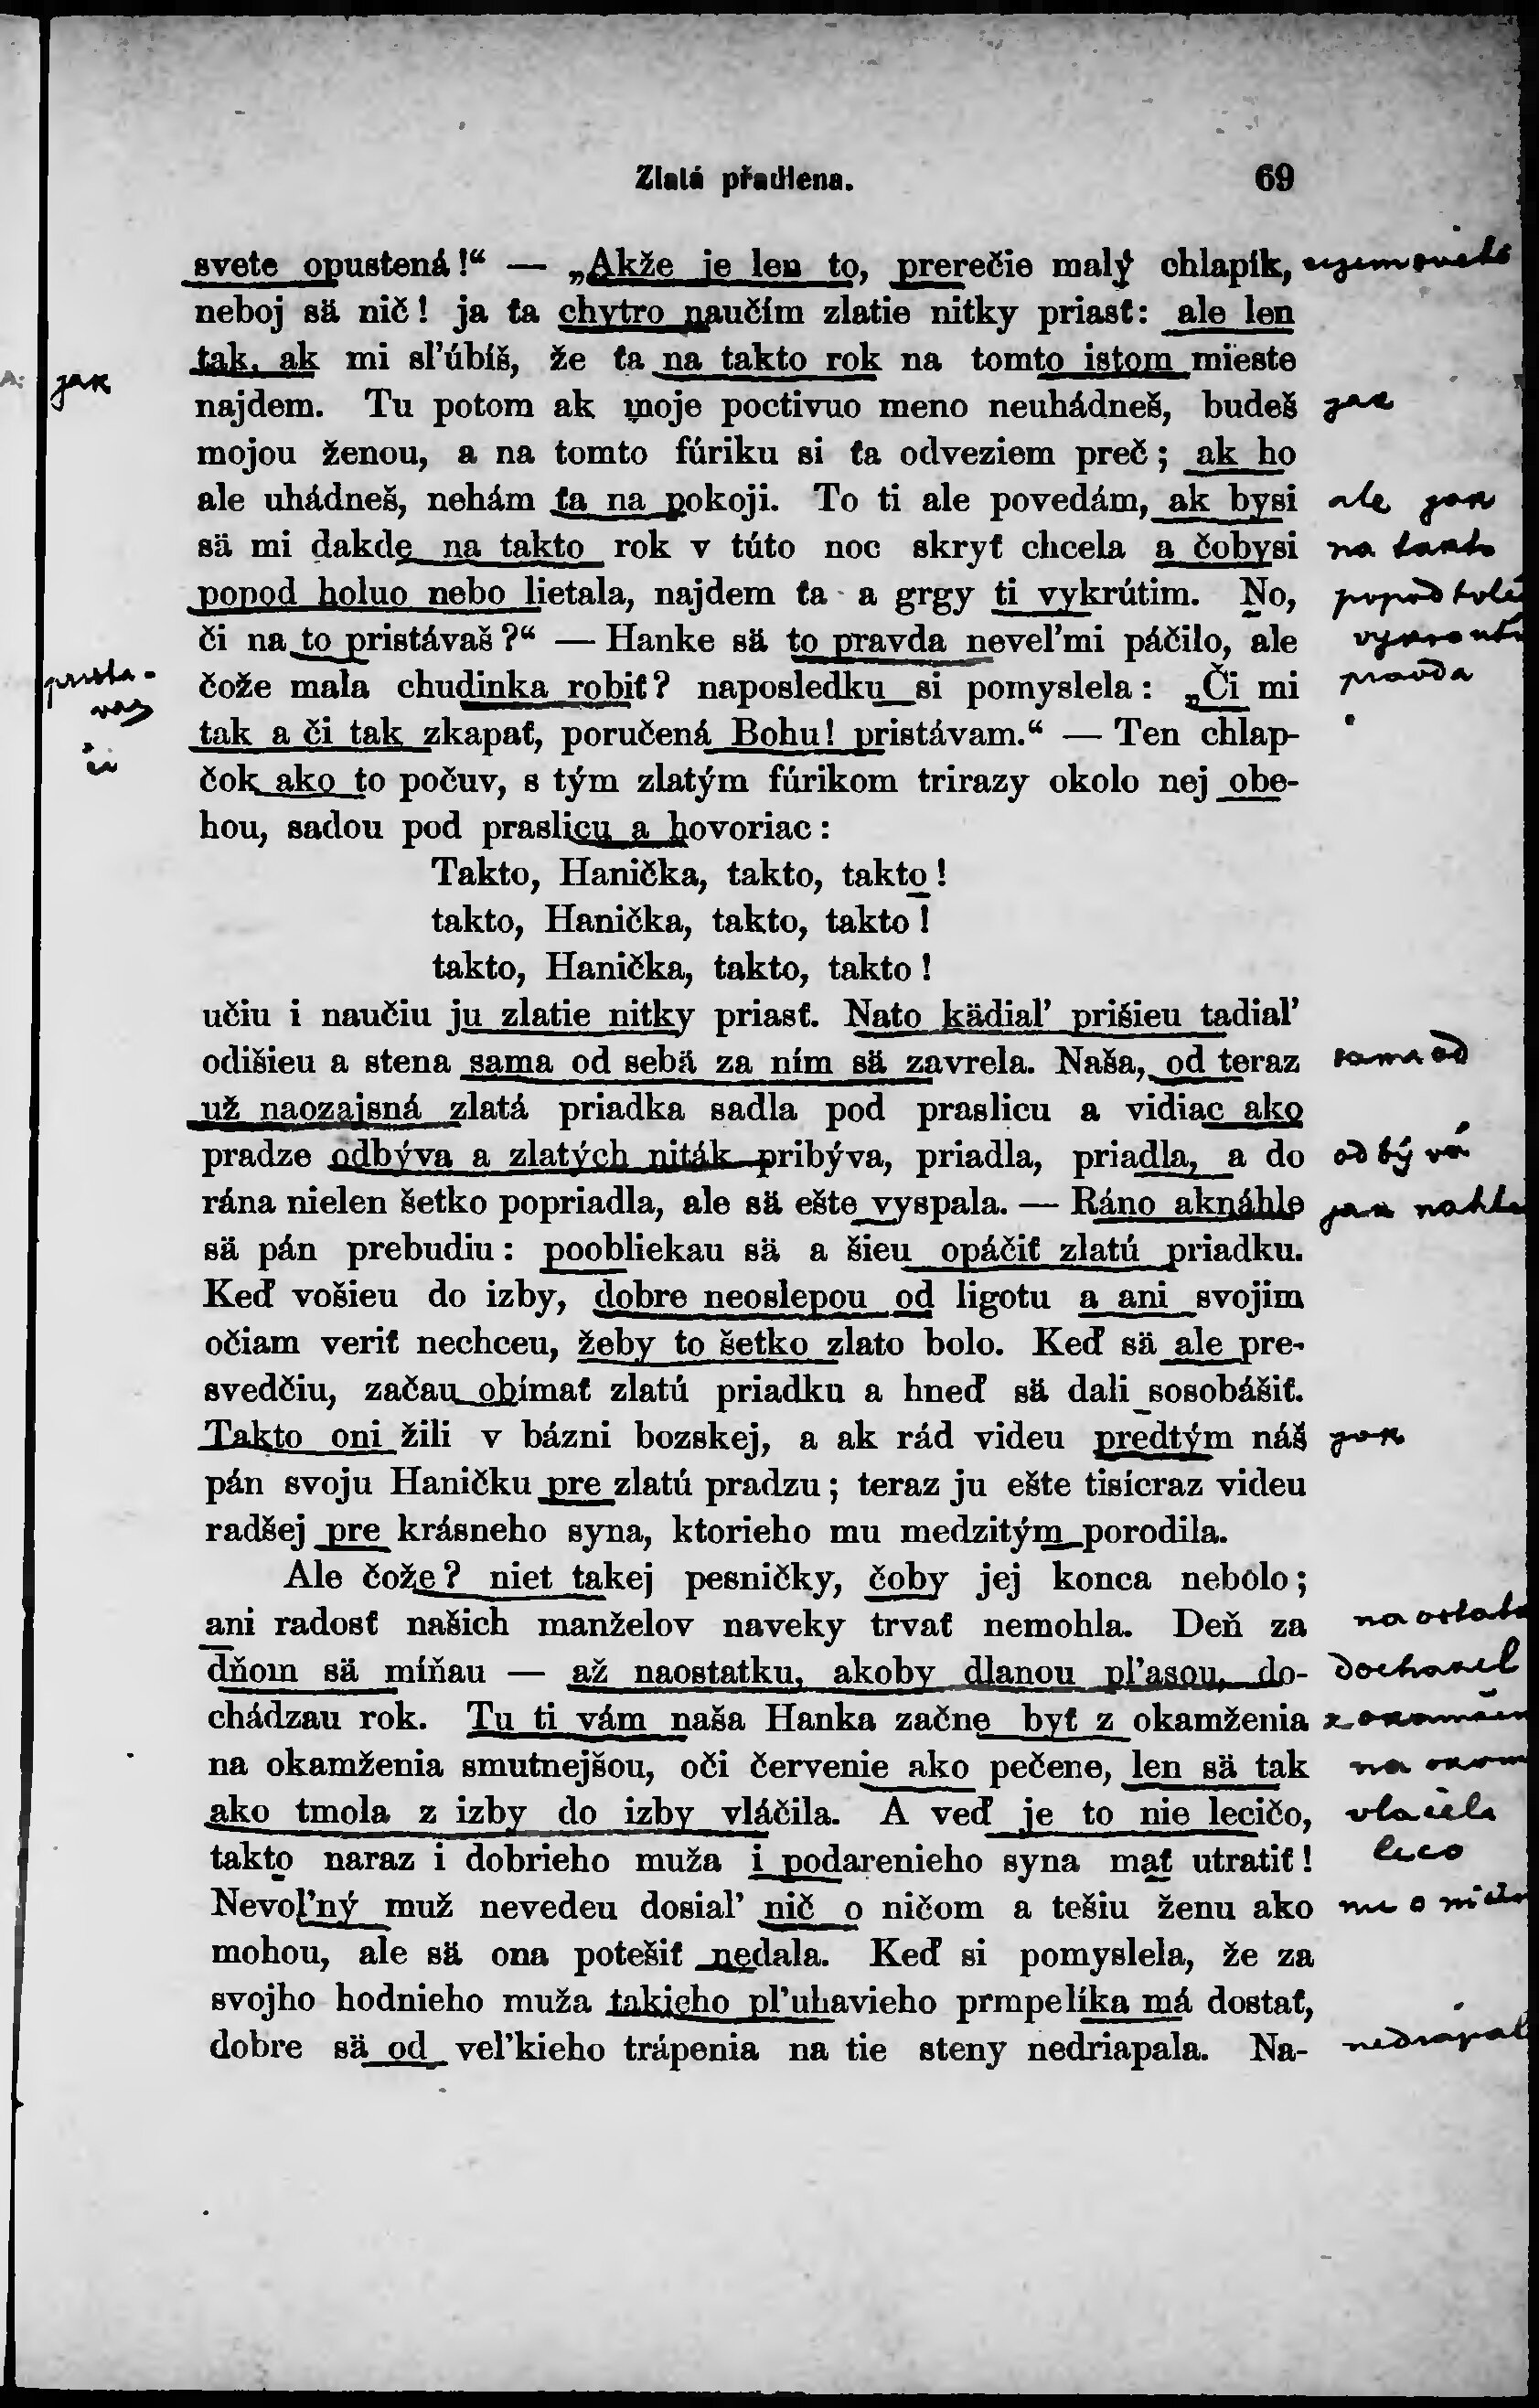 Zlatá přadlena. 69
svete opustená!“ — „Akže je len to, prerečie malý chlapík,
neboj sä nič! ja ťa chytro naučím zlatie nitky priasť: ale len
tak, ak mi sľúbíš, že ťa na takto rok na tomto istom mieste
jak
najdem. Tu potom ak moje poctivuo meno neuhádneš, budeš jak
mojou ženou, a na tomto fúriku si ťa odveziem preč; ak ho
ale uhádneš, nehám ťa na pokoji. To ti ale povedám, ak bysi ale jak
sä mi dakde na takto rok v túto noc skryť chcela a čobysi na takto
popod holuo nebo lietala, najdem ťa a grgy ti vykrútim. No, popod
či na to pristávaš?“ — Hanke sä to pravda neveľmi páčilo, ale
prista-
čože mala chudinka robiť? naposledku si pomyslela: „Či mi pravda
vaš
tak a či tak zkapať, poručená Bohu! pristávam.“ — Ten chlap-
či
čok ako to počuv, s tým zlatým fúrikom trirazy okolo nej obe-
hou, sadou pod praslicu a hovoriac:
Takto, Hanička, takto, takto!
takto, Hanička, takto, takto!
takto, Hanička, takto, takto!
učiu i naučiu ju zlatie nitky priasť. Nato kädiaľ prišieu tadiaľ
odišieu a stena sama od sebä za ním sä zavrela. Naša, od teraz sama od
už naozajsná zlatá priadka sadla pod praslicu a vidiac ako
pradze odbýva a zlatých niták pribýva, priadla, priadla, a do odbývá
rána nielen šetko popriadla, ale sä ešte vyspala. — Ráno aknáhle jak
sä pán prebudiu: poobliekau sä a šieu opáčiť zlatú priadku.
Keď vošieu do izby, dobre neoslepou od ligotu a ani svojim
očiam veriť nechceu, žeby to šetko zlato bolo. Keď sä ale pre-
svedčiu, začau obímať zlatú priadku a hneď sä dali sosobášiť.
Takto oni žili v bázni bozskej, a ak rád videu predtým náš jak
pán svoju Haničku pre zlatú pradzu; teraz ju ešte tisícraz videu
radšej pre krásneho syna, ktorieho mu medzitým porodila.
Ale čože? niet takej pesničky, čoby jej konca nebolo;
ani radosť našich manželov naveky trvať nemohla. Deň za
dňom sä míňau — až naostatku, akoby dlanou pľasou, do-
chádzau rok. Tu ti vám naša Hanka začne byť z okamženia
na okamženia smutnejšou, oči červenie ako pečene, len sä tak
ako tmola z izby do izby vláčila. A veď je to nie lecičo, vlačila
takto naraz i dobrieho muža i podarenieho syna mať utratiť! leco
Nevoľný muž nevedeu dosiaľ nič o ničom a tešiu ženu ako
mohou, ale sä ona potešiť nedala. Keď si pomyslela, že za
svojho hodnieho muža takieho pľuhavieho prmpelíka má dostať,
dobre sä od veľkieho trápenia na tie steny nedriapala. Na-